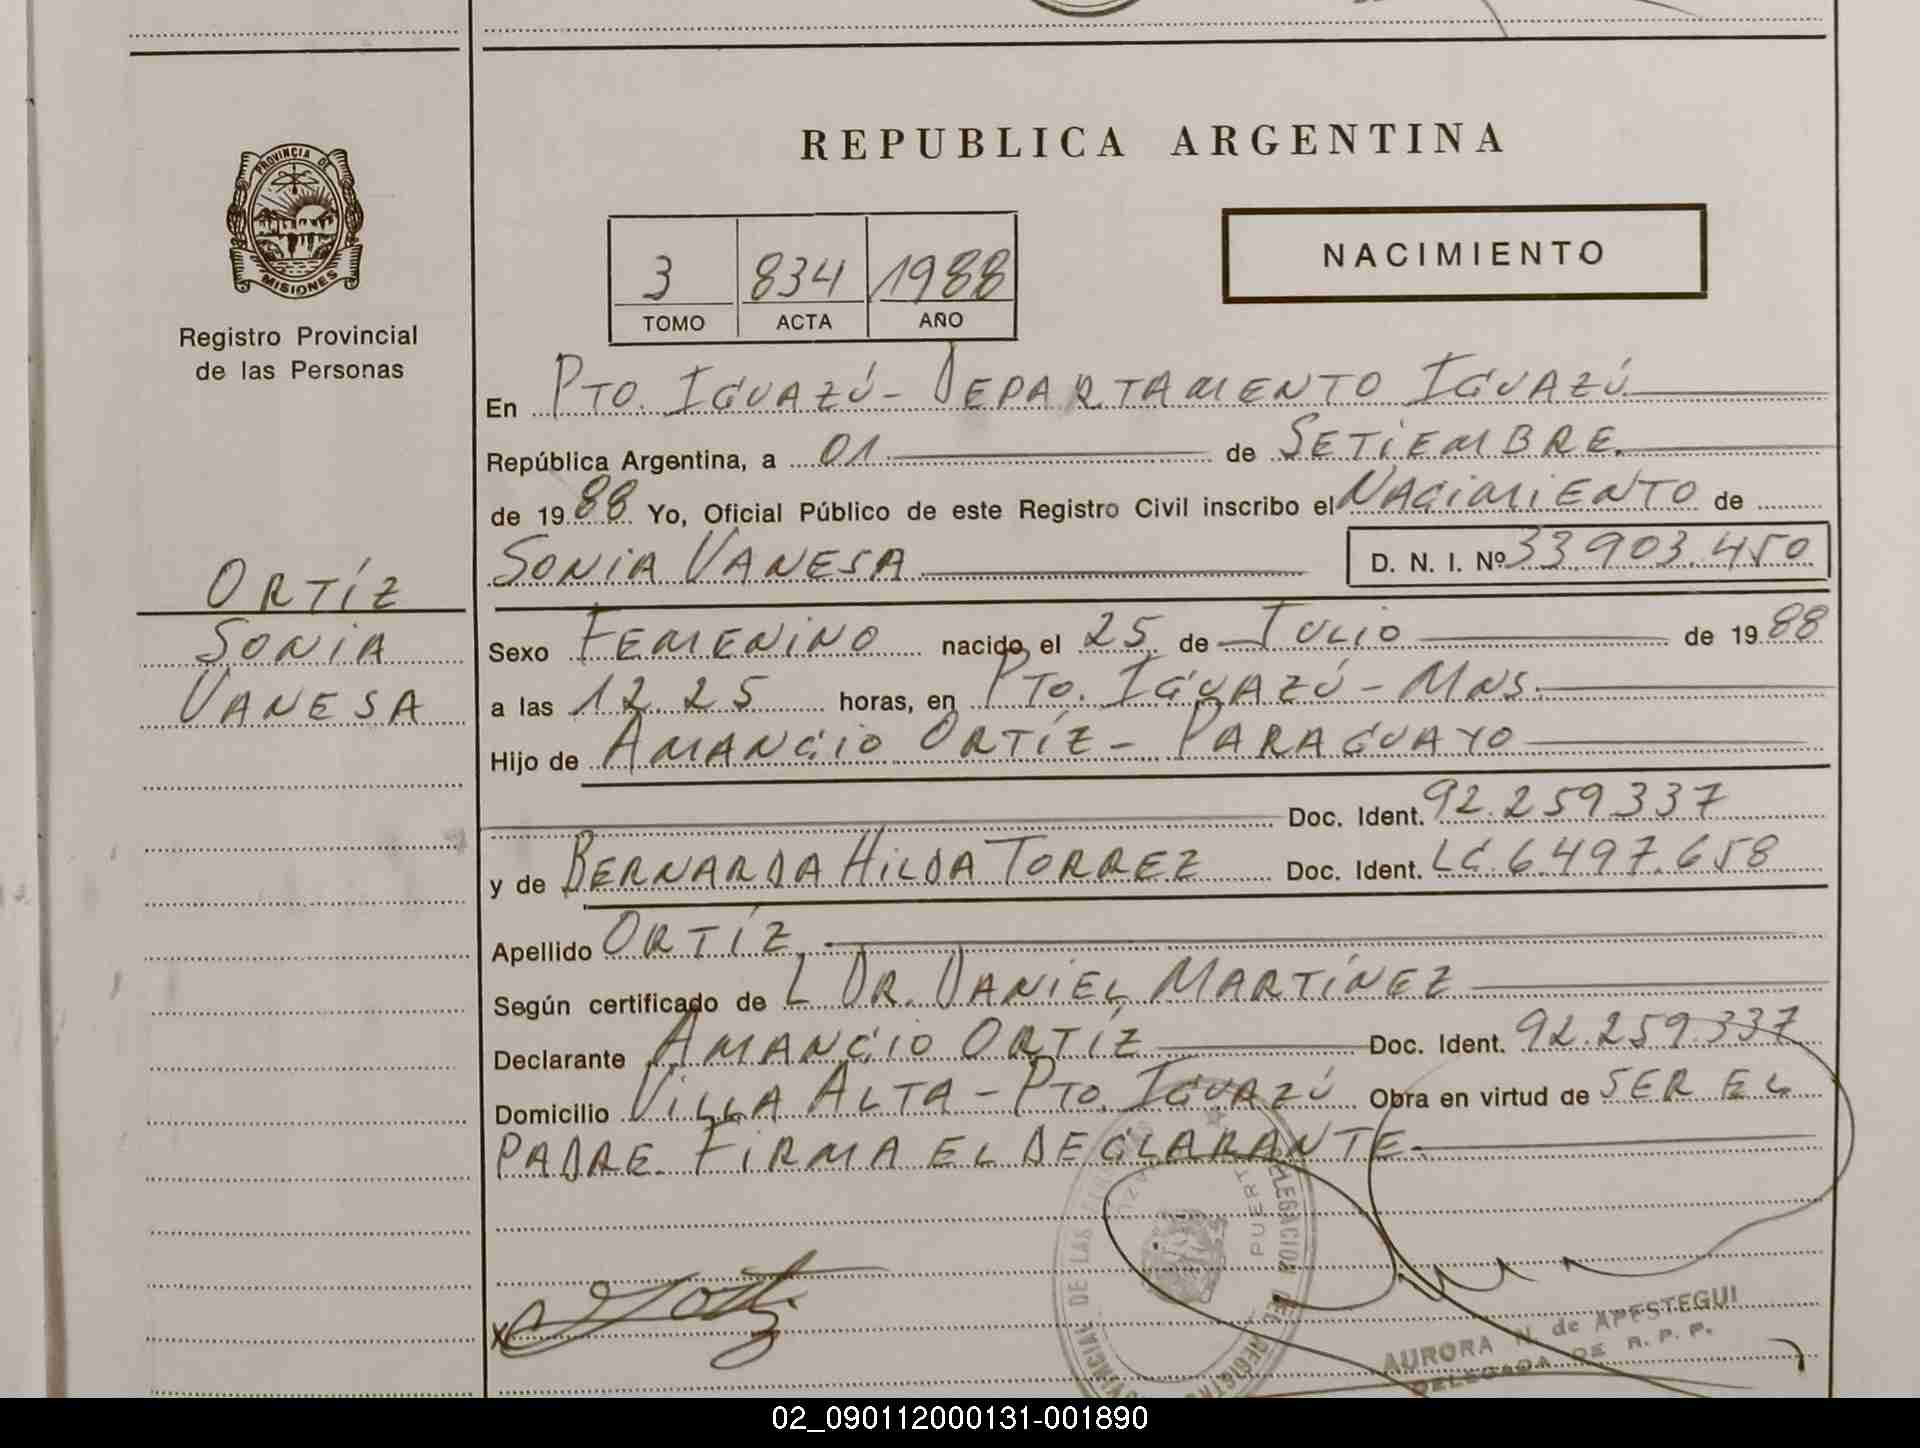 REPUBLICA ARGENTINA
PROVINCIA DE
MISIONES
Registro Provincial
de las Personas
3 834 1988
TOMO ACTA AÑO
NACIMIENTO
En PTO. IGUAZÚ - DEPARTAMENTO IGUAZÚ
República Argentina, a 01 de SETIEMBRE.
de 1988 Yo, Oficial Público de este Registro Civil inscribo el NACIMIENTO de
SONIA VANESA D. N. I. Nº 33.903.450
ORTÍZ
SONIA
VANESA
Sexo FEMENINO nacido el 25 de JULIO de 1988
a las 12.25 horas, en PTO. IGUAZÚ - MNS.
Hijo de AMANCIO ORTÍZ - PARAGUAYO
Doc. Ident. 92.259.337
y de BERNARDA HILDA TORREZ Doc. Ident. LC. 6.497.658
Apellido ORTÍZ
Según certificado de L DR. DANIEL MARTÍNEZ
Declarante AMANCIO ORTÍZ Doc. Ident. 92.259.337
Domicilio VILLA ALTA - PTO. IGUAZÚ Obra en virtud de SER EL
PADRE. FIRMA EL DECLARANTE.
DELEGACION
PUERT
DE LAS
AURORA N. de APESTEGUI
DELEGADA DE R. P. P.
02_090112000131-001890